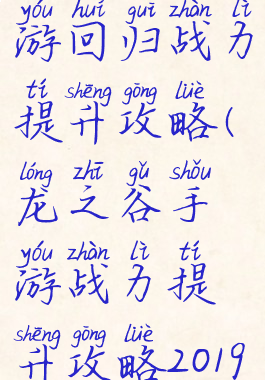 yóu huí guī zhàn lì
游回归战力
tí shēng gōng lüè
提升攻略(
lóng zhī gǔ shǒu
龙之谷手
yóu zhàn lì tí
游战力提
shēng gōng lüè
升攻略2019